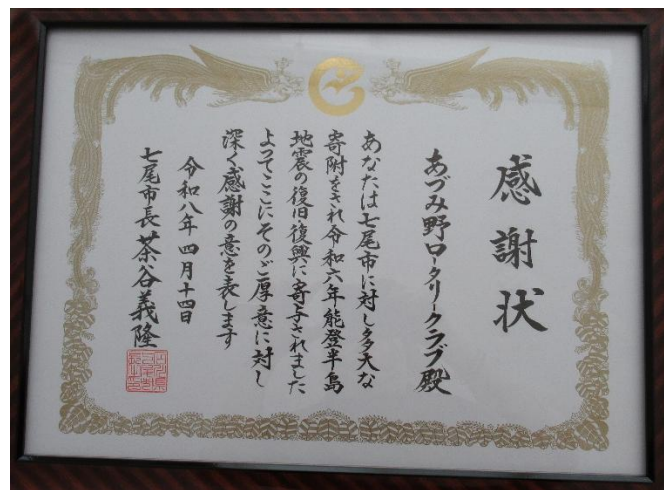 感謝状
あづみ野ロータリークラブ殿
あなたは七尾市に対し多大な
寄附をされ令和六年能登半島
地震の復旧・復興に寄与されました
よってここにそのご厚意に対し
深く感謝の意を表します
令和八年四月十四日
七尾市長 茶谷義隆